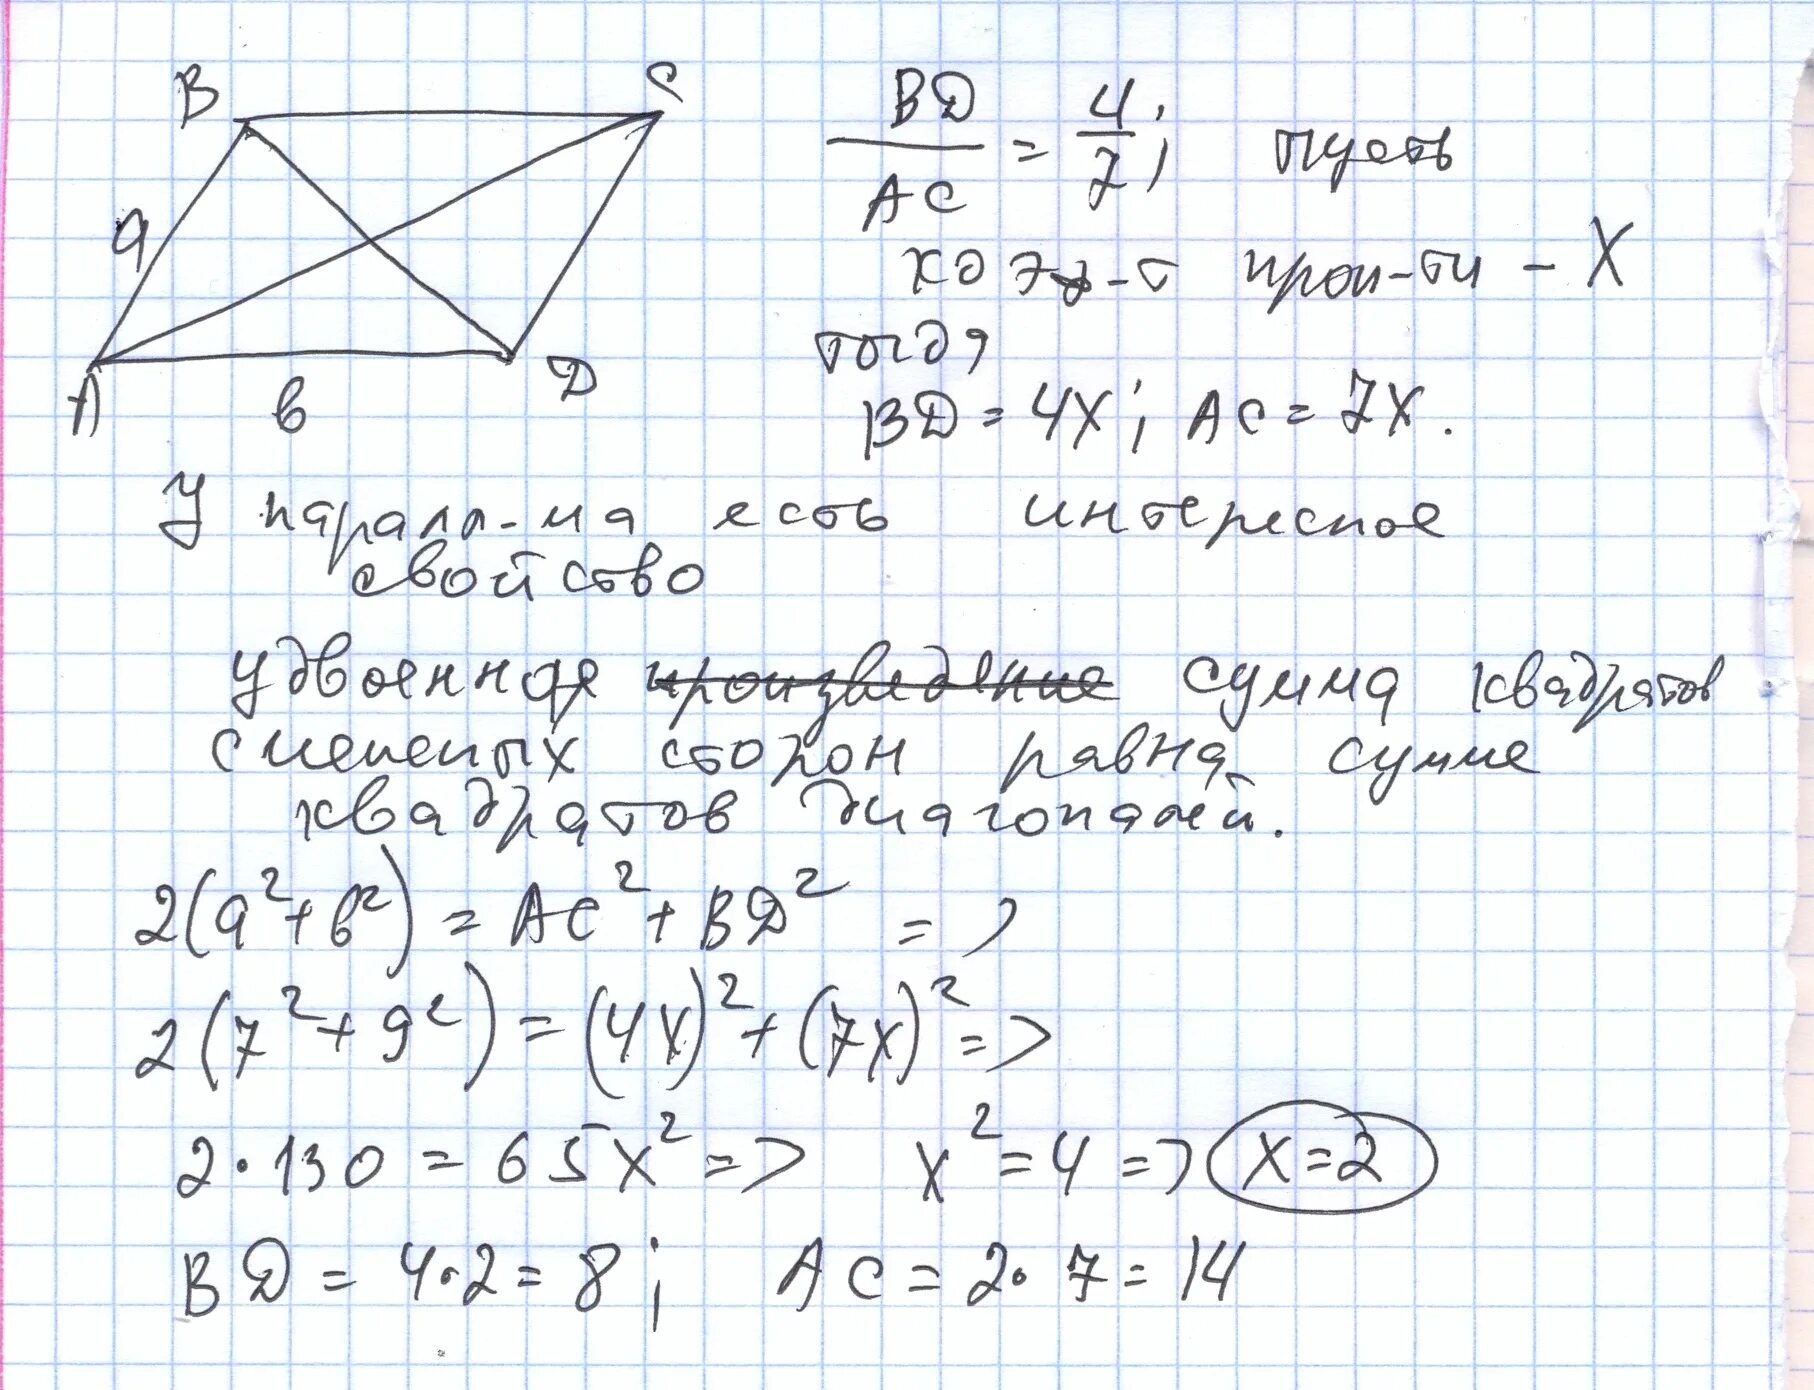 B C
a
A в D
BD/AC = 4/7; пусть
коэф-т проп-ти - X
тогда
BD = 4X; AC = 7X.
У паралл-ма есть интересное
свойство
удвоенная ~~произведение~~ сумма квадратов
смежных сторон равна сумме
квадратов диагоналей.
2(a²+в²) = AC² + BD² =>
2(7²+9²) = (4X)² + (7X)² =>
2·130 = 65X² => X² = 4 => X=2
BD = 4·2 = 8; AC = 2·7 = 14